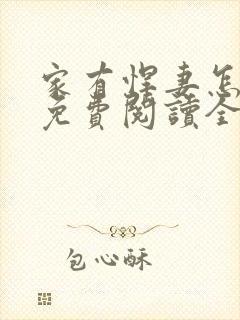 家有悍妻怎
免費閱讀全
包心酥